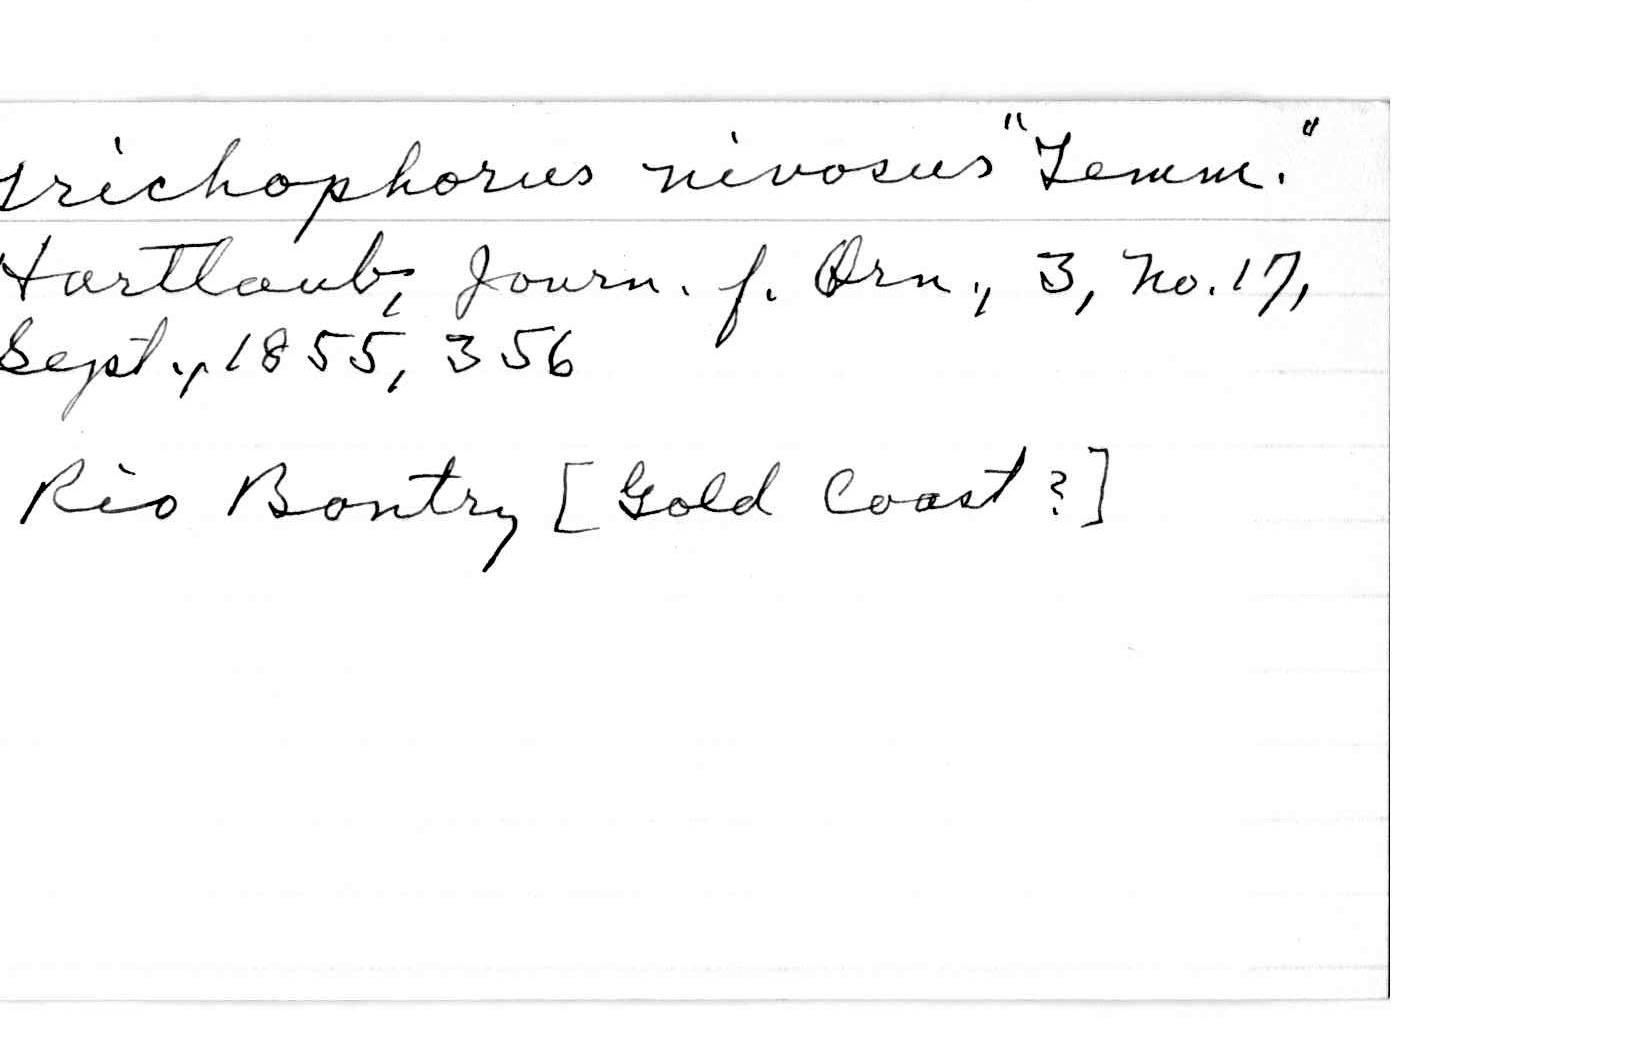 Trichophorus nivosus "Temm."
Hartlaub, Journ. f. Orn., 3, No. 17,
Sept., 1855, 356
Rio Bontry [Gold Coast ?]